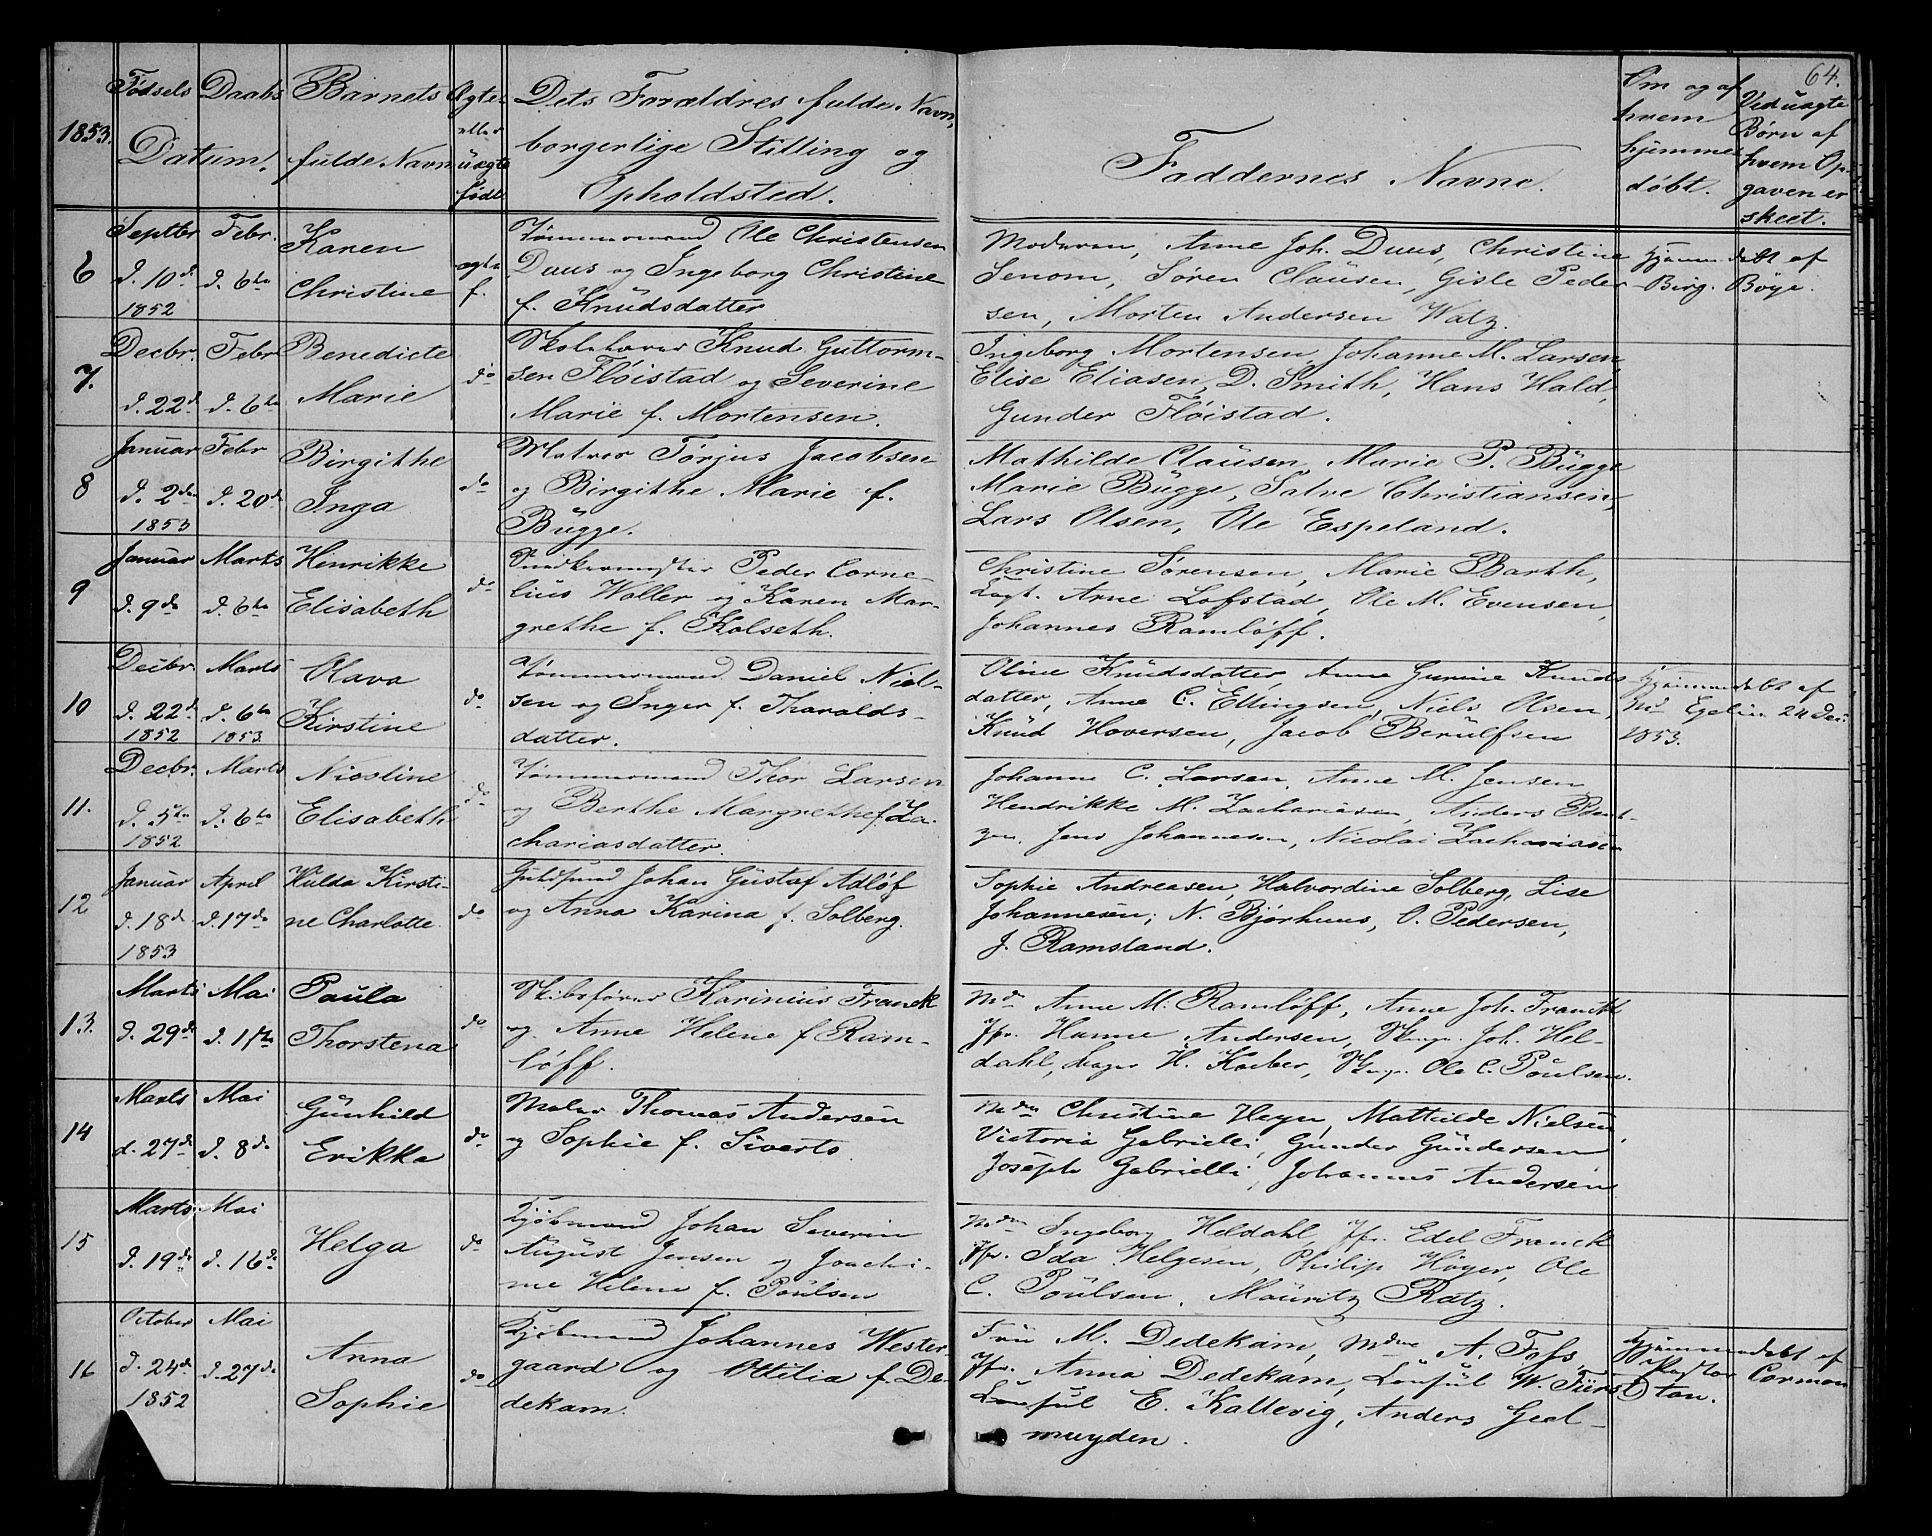 64.
1853.
Fødsels Daabs
Datum.
Barnets
fulde Navn
Ægte
eller
uægte
født
Dets Forældres fulde Navn,
borgerlige Stilling og
Opholdsted.
Faddernes Navne.
Om og af
hvem
hjemme
døbt.
Ved uægte
Børn af
hvem Op-
gaven er
skeet.
6
Septbr
d. 10d
1852
Febr.
d. 6te
Karen
Christine
ægte
f.
Tømmermand Ole Christensen
Duus og Ingeborg Christine
f. Knudsdatter
Moderen, Anne Joh. Duus, Christine
Senom, Søren Clausen, Gisle Peder-
sen, Morten Andersen Watz.
Hjemmedøbt af
Birg. Bøye.
7.
Decbr.
d. 22d
Febr
d. 6te
Benedicte
Marie
do
Skolelærer Knud Guttorm-
sen Fløistad og Severine
Marie f. Mortensen.
Ingeborg Mortensen, Johanne M. Larsen
Elise Eliasen, D. Smith, Hans Hald,
Gunder Fløistad.
8
Januar
d. 2den
1853
Febr
d. 20d
Birgithe
Inga
do
Matros Torjus Jacobsen
og Birgithe Marie f.
Bugge.
Mathilde Clausen, Marie P. Bugge
Marie Bugge, Salve Christiansen,
Lars Olsen, Ole Espeland.
9
Januar
d. 9de
Marts
d. 6te
Henrikke
Elisabeth
do
Peder Corne-
lius Woller og Karen Mar-
grethe f. Kolseth.
Christine Sørensen, Marie Barth,
Arne Lofstad, Ole M. Evensen,
Johannes Ramløff.
10
Decbr.
d. 22d
1852
Marts
d. 6te
1853
Olava
Kirstine
do
Tømmermand Daniel Niel-
sen og Inger f. Tharalds-
datter.
Oline Knudsdatter, Anne Gurine Knuds
datter, Anne C. Ellingsen, Niels Olsen,
Knud Hoversen, Jacob Berulfsen
Hjemmedøbt af
Md Egelin 24 Dec
1853.
11.
Decbr.
d. 5te
1852
Marts
d. 6te
Nicoline
Elisabeth
do
Tømmermand Thor Larsen
og Berthe Margrethe f. Za-
chariasdatter.
Johanne C. Larsen, Anne M. Jensen
Hendrikke M. Zachariasen, Anders Bent-
zen, Jens Johannesen, Nicolai Zachariasen
12
Januar
d. 18d
1853
April
d. 17de
Hulda Kirsti-
ne Charlotte
do
Guldsmed Johan Gustaf Adløf
og Anna Karina f. Solberg.
Sophie Andreasen, Halvordine Solberg, Lise
Johannesen, N. Bjørhuus, O. Pedersen,
J. Ramsland.
13.
Marts
d. 29d
Mai
d. 1ste
Paula
Thorstena
do
Skibsfører Karinius Franck
og Anne Helene f Ram-
løff.
Md Anne M. Ramløff, Anne Joh. Franck
Jfr. Hanne Andersen, Joh. Hel-
dahl, H. Kaeber, Ole C. Poulsen.
14
Marts
d. 27de
Mai
d. 8de
Gunhild
Erikka
do
Maler Thomas Andersen
og Sophie f. Siverts.
Mdm Christine Heyn, Mathilde Nielsen,
Victoria Gabrielli, Gunder Gundersen
Joseph Gabrielli, Johannes Andersen
15
Marts
d. 19de
Mai
d. 16de
Helga
do
Kjøbmand Johan Severin
August Jensen og Joachi-
me Helene f. Poulsen
Mdm Ingeborg Heldahl, Jfr. Edel Franck
Jfr. Ida Helgesen, Philip Høyer, Ole
C. Poulsen, Mauritz Ratz.
16
October
d. 24de
1852
Mai
d. 27de
Anna
Sophie
do
Kjøbmand Johannes Wester-
gaard og Ottilia f. De-
dekam.
Fru M. Dedekam, Mdme A. Foss,
Jfr. Anna Dedekam, Konsul W. Fürst
Konsul E. Kallevig, Anders Geel-
muyden.
Hjemmedøbt af
Pastor Corman
Dton.